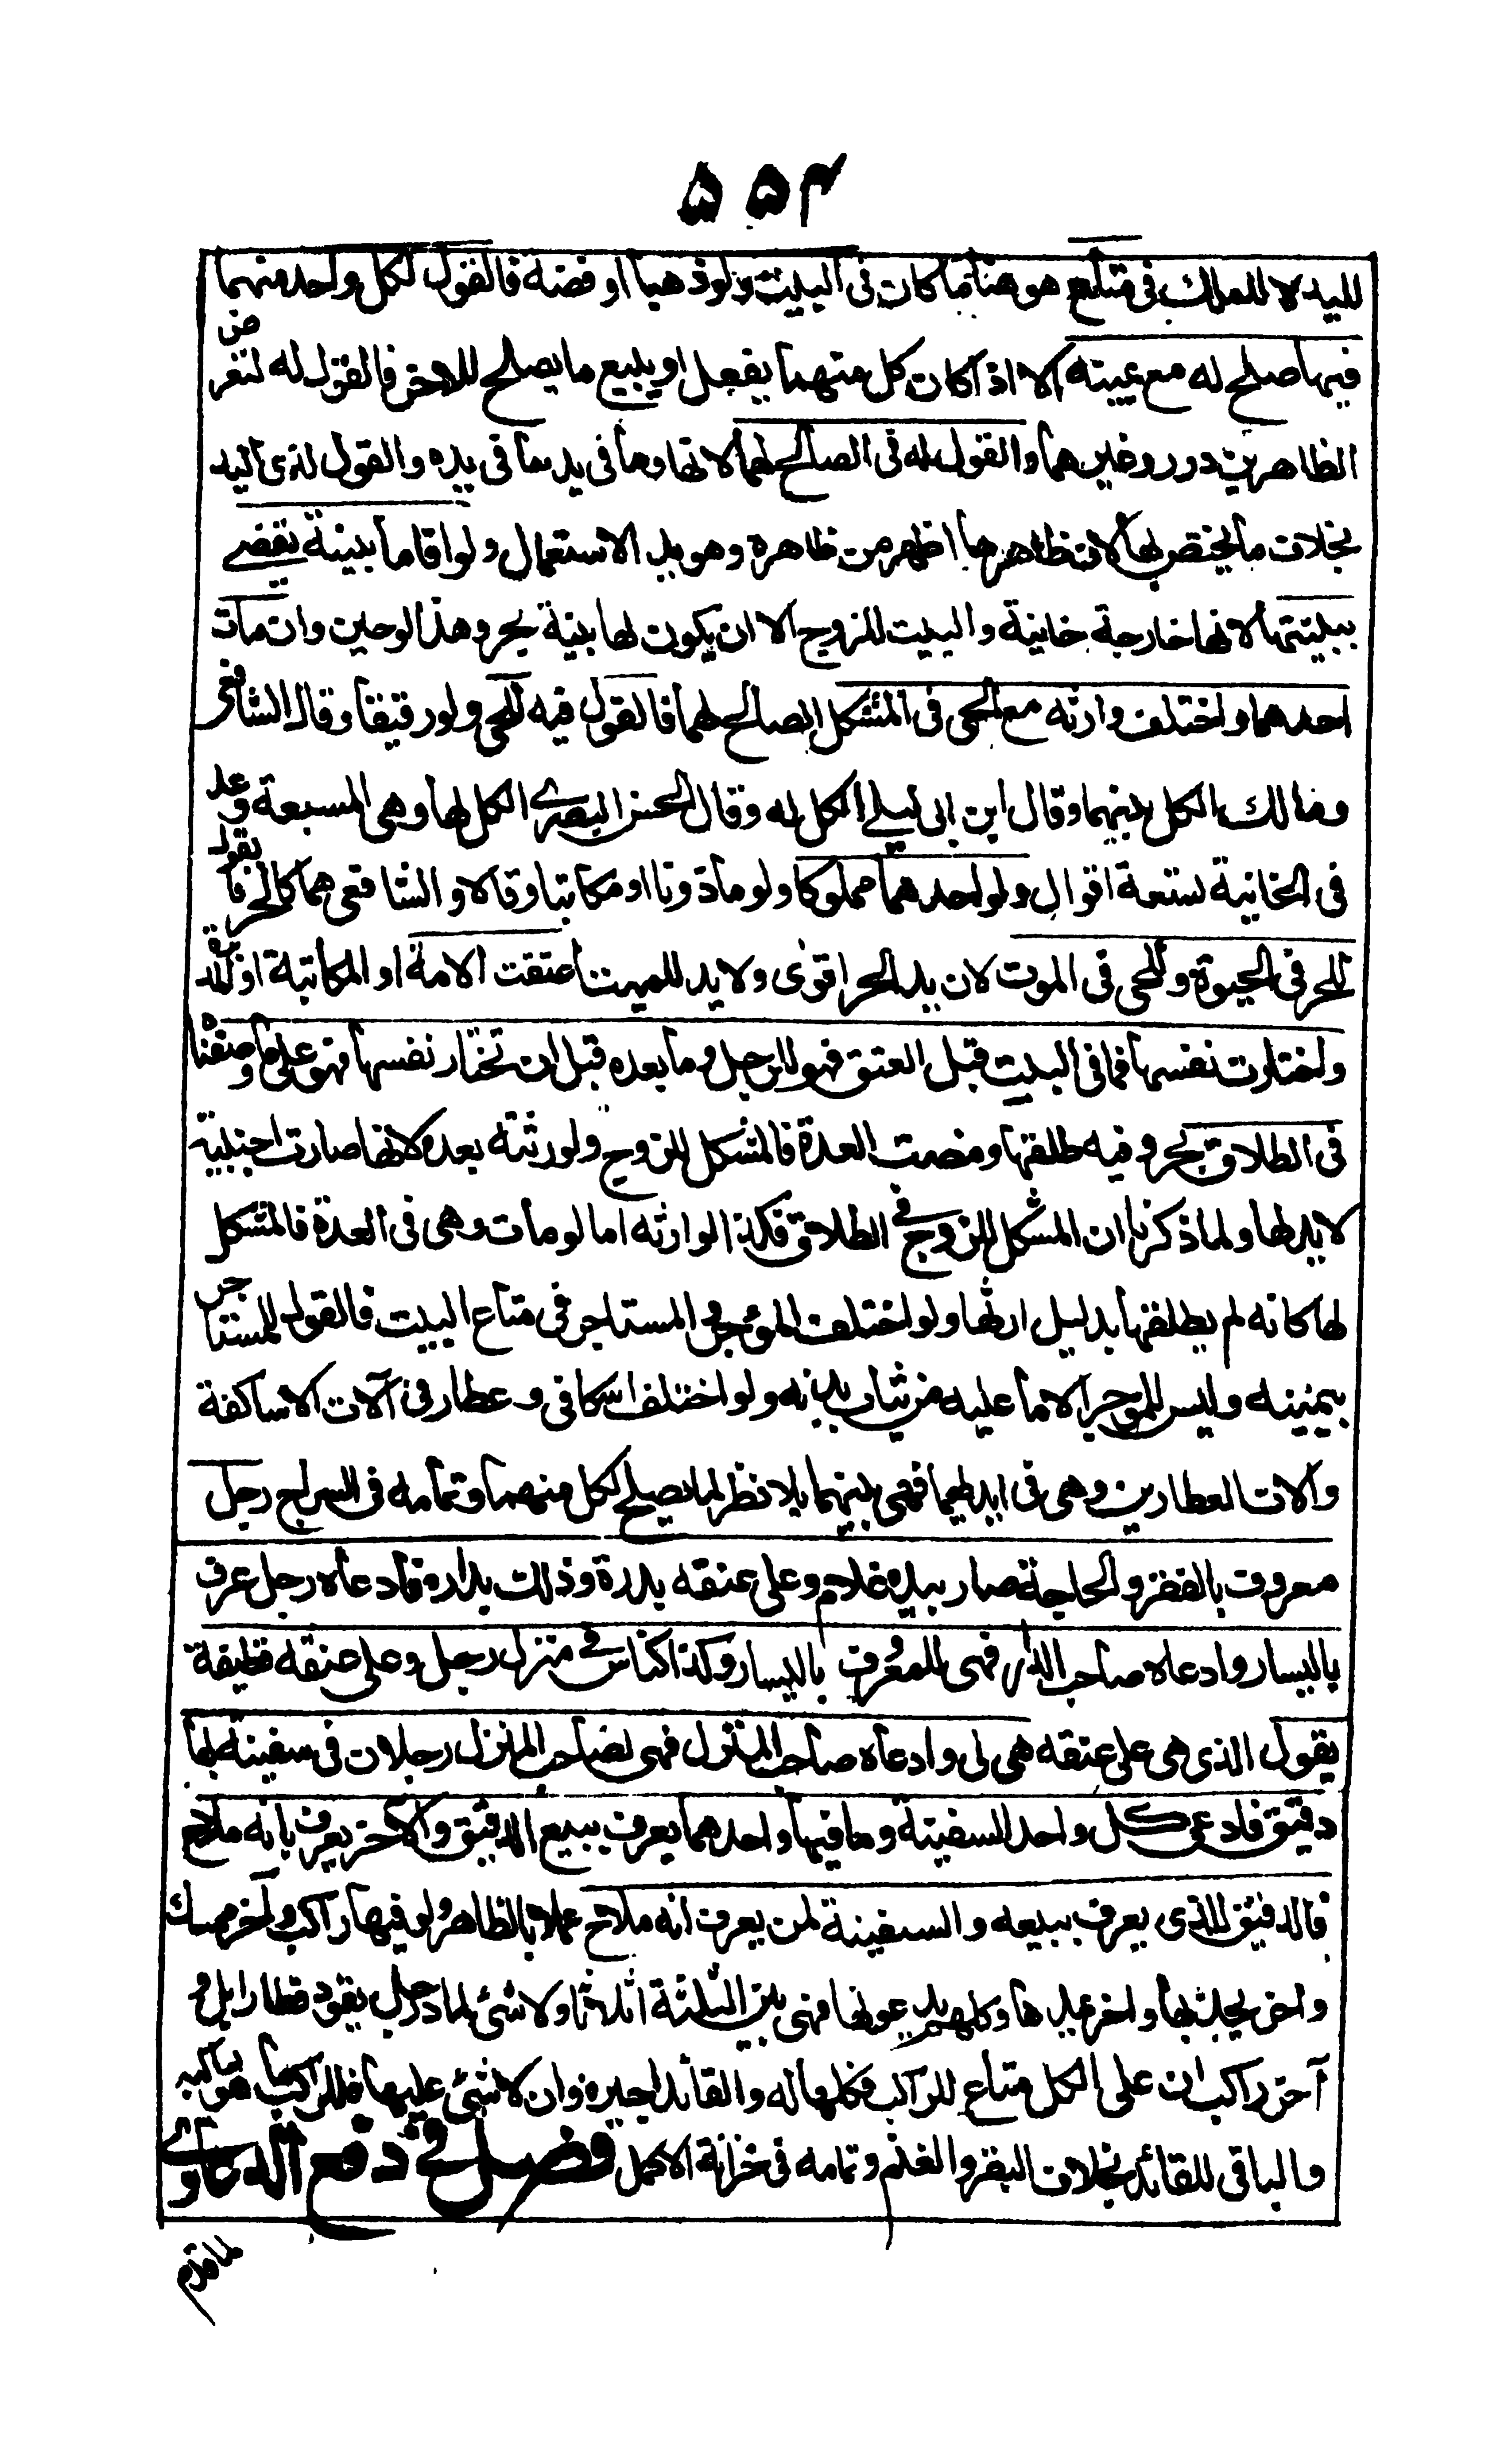 ۵۵۴
لليد لا للملك فى متاع هو هنا ما كان فى البيت ولو ذهبا او فضة فالقول لكل واحد منهما
فيما صلح له مع يمينه الا اذا كان كل منهما يفعل او يبيع ما يصلح للاخر فالقول له لتعارض
الظاهرين درر وغيرهما والقول له فى الصالح لهما لانها وما فى يدها فى يده والقول لذى اليد
بخلاف ما يختص بها لان ظاهرها اظهر من ظاهره وهو يد الاستعمال ولو اقاما بينة يقضے
ببينتها لانها خارجة خانية والبيت للزوج الا ان يكون لها بينة بحر وهذا لو حيين وان مات
احدهما واختلف وارثه مع الحى فى المشكل الصالح لهما فالقول فيه للحى ولو رقيقا وقال الشافعى
ومالك الكل بينهما وقال ابن ابى ليلے الكل له وقال الحسن البصرے الكل لها وهى المسبعة وعد
فى الخانية تسعة اقوال ولو احدهما مملوكا ولو ماذونا او مكاتبا وقالا والشافعى هما كالحر فالقول
للحر فى الحيوة وللحى فى الموت لان يد الحر اقوى ولا يد للميت اعتقت الامة او المكاتبة او المدبرة
واختارت نفسها فما فى البيت قبل العتق فهو للرجل وما بعده قبل ان تختار نفسها فهو على ما وصفنا
فى الطلاق بحر وفيه طلقها ومضت العدة فالمشكل للزوج ولورثته بعده لانها صارت اجنبية
لا يد لها ولما ذكرنا ان المشكل للزوج فى الطلاق فكذا لوارثه اما لو مات وهى فى العدة فالمشكل
لها كانه لم يطلقها بدليل ارثها ولو اختلف المؤجر والمستاجر فى متاع البيت فالقول للمستاجر
بيمينه وليس للموجر الا ما عليه من ثياب بدنه ولو اختلف اسكافى وعطار فى آلات الاساكفة
وآلات العطارين وهى فى ايديهما فهى بينهما بلا نظر لما يصلح لكل منهما وتمامه فى السراج رجل
معروف بالفقر والحاجة صار بيده غلام وعلى عنقه بدرة وذلك بداره فادعاه رجل عرف
باليسار وادعاه صاحب الدار فهى للمعروف باليسار وكذا كناس فى منزل رجل وعلى عنقه قطيفة
يقول الذى هى على عنقه هى لى وادعاه صاحب المنزل فهى لصاحب المنزل رجلان فى سفينة بها
دقيق فادعى كل واحد السفينة وما فيها واحدهما يعرف ببيع الدقيق والآخر يعرف بانه ملاح
فالدقيق للذى يعرف ببيعه والسفينة لمن يعرف انه ملاح عملا بالظاهر ولو فيها راكب وآخر ممسك
وآخر يجذبها وآخر يمدها وكلهم يدعونها فهى بين الثلثة اثلاثا ولا شئ للماد رجل يقود قطار ابل و
آخر راكب ان على الكل متاع للراكب فكلها له والقائد اجيره وان لا شئ عليها فللراكب ما هو راكبه
والباقى للقائد بخلاف البقر والغنم وتمامه فى خزانة الاكمل فصل فى دفع الدعاوے
لما قدم